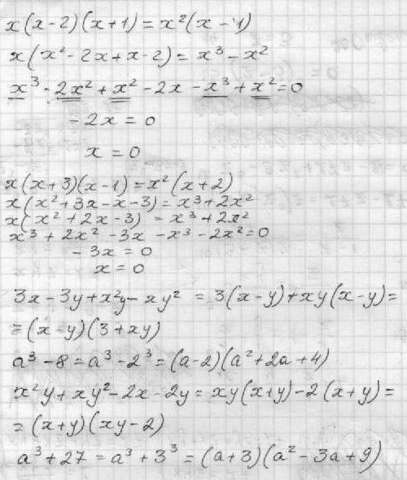 x(x-2)(x+1)=x²(x-1)
x(x²-2x+x-2)=x³-x²
x³-2x²+x²-2x-x³+x²=0
-2x=0
x=0
x(x+3)(x-1)=x²(x+2)
x(x²+3x-x-3)=x³+2x²
x(x²+2x-3)=x³+2x²
x³+2x²-3x-x³-2x²=0
-3x=0
x=0
3x-3y+x²y-xy²=3(x-y)+xy(x-y)=
=(x-y)(3+xy)
a³-8=a³-2³=(a-2)(a²+2a+4)
x²y+xy²-2x-2y=xy(x+y)-2(x+y)=
=(x+y)(xy-2)
a³+27=a³+3³=(a+3)(a²-3a+9)